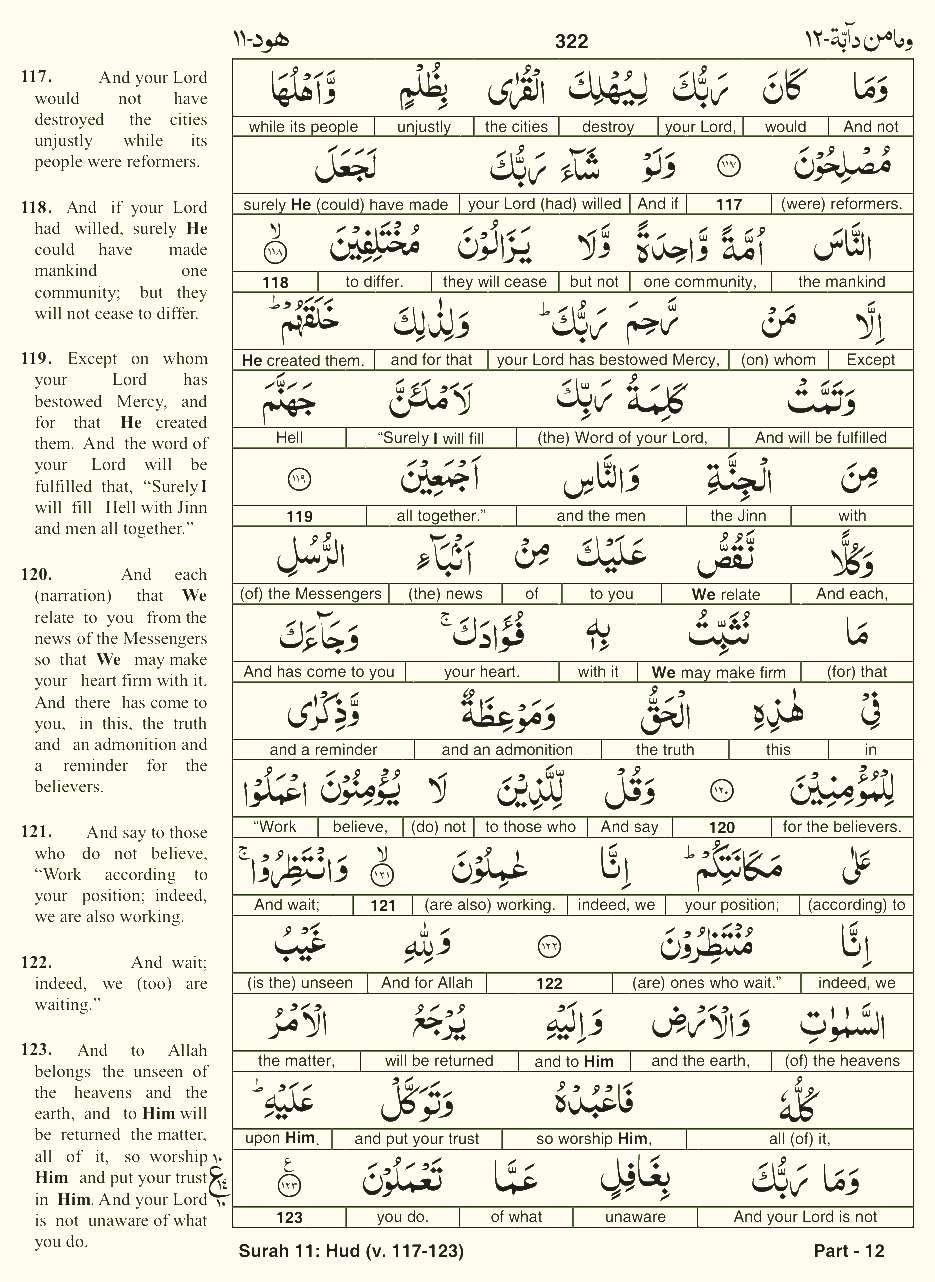 هود-١١ 322 ومامن دآبة-١٢
117. And your Lord
would not have
destroyed the cities
unjustly while its
people were reformers.
118. And if your Lord
had willed, surely He
could have made
mankind one
community; but they
will not cease to differ.
119. Except on whom
your Lord has
bestowed Mercy, and
for that He created
them. And the word of
your Lord will be
fulfilled that, “Surely I
will fill Hell with Jinn
and men all together.”
120. And each
(narration) that We
relate to you from the
news of the Messengers
so that We may make
your heart firm with it.
And there has come to
you, in this, the truth
and an admonition and
a reminder for the
believers.
121. And say to those
who do not believe,
“Work according to
your position; indeed,
we are also working.
122. And wait;
indeed, we (too) are
waiting.”
123. And to Allah
belongs the unseen of
the heavens and the
earth, and to Him will
be returned the matter,
all of it, so worship
Him and put your trust
in Him. And your Lord
is not unaware of what
you do.
وَمَا كَانَ رَبُّكَ لِيُهْلِكَ الْقُرٰى بِظُلْمٍ وَّاَهْلُهَا
while its people unjustly the cities destroy your Lord, would And not
مُصْلِحُوْنَ ١١٧ وَلَوْ شَآءَ رَبُّكَ لَجَعَلَ
surely He (could) have made your Lord (had) willed And if 117 (were) reformers.
النَّاسَ اُمَّةً وَّاحِدَةً وَّلَا يَزَالُوْنَ مُخْتَلِفِيْنَ ۙ ١١٨
118 to differ. they will cease but not one community, the mankind
اِلَّا مَنْ رَّحِمَ رَبُّكَ ؕ وَلِذٰلِكَ خَلَقَهُمْ ؕ
He created them. and for that your Lord has bestowed Mercy, (on) whom Except
وَتَمَّتْ كَلِمَةُ رَبِّكَ لَاَمْلَـَٔنَّ جَهَنَّمَ
Hell “Surely I will fill (the) Word of your Lord, And will be fulfilled
مِنَ الْجِنَّةِ وَالنَّاسِ اَجْمَعِيْنَ ١١٩
119 all together.” and the men the Jinn with
وَكُلًّا نَّقُصُّ عَلَيْكَ مِنْ اَنْۢبَآءِ الرُّسُلِ
(of) the Messengers (the) news of to you We relate And each,
مَا نُثَبِّتُ بِهٖ فُؤَادَكَ ۚ وَجَآءَكَ
And has come to you your heart. with it We may make firm (for) that
فِيْ هٰذِهِ الْحَقُّ وَمَوْعِظَةٌ وَّذِكْرٰى
and a reminder and an admonition the truth this in
لِلْمُؤْمِنِيْنَ ١٢٠ وَقُلْ لِّلَّذِيْنَ لَا يُؤْمِنُوْنَ اعْمَلُوْا
“Work believe, (do) not to those who And say 120 for the believers.
عَلٰى مَكَانَتِكُمْ ؕ اِنَّا عٰمِلُوْنَ ۙ ١٢١ وَانْتَظِرُوْا ۚ
And wait; 121 (are also) working. indeed, we your position; (according) to
اِنَّا مُنْتَظِرُوْنَ ١٢٢ وَلِلّٰهِ غَيْبُ
(is the) unseen And for Allah 122 (are) ones who wait.” indeed, we
السَّمٰوٰتِ وَالْاَرْضِ وَاِلَيْهِ يُرْجَعُ الْاَمْرُ
the matter, will be returned and to Him and the earth, (of) the heavens
كُلُّهٗ فَاعْبُدْهُ وَتَوَكَّلْ عَلَيْهِ ؕ
upon Him. and put your trust so worship Him, all (of) it,
وَمَا رَبُّكَ بِغَافِلٍ عَمَّا تَعْمَلُوْنَ ع ١٢٣
123 you do. of what unaware And your Lord is not
١٠ ع ١٤ ١٠
Surah 11: Hud (v. 117-123) Part - 12